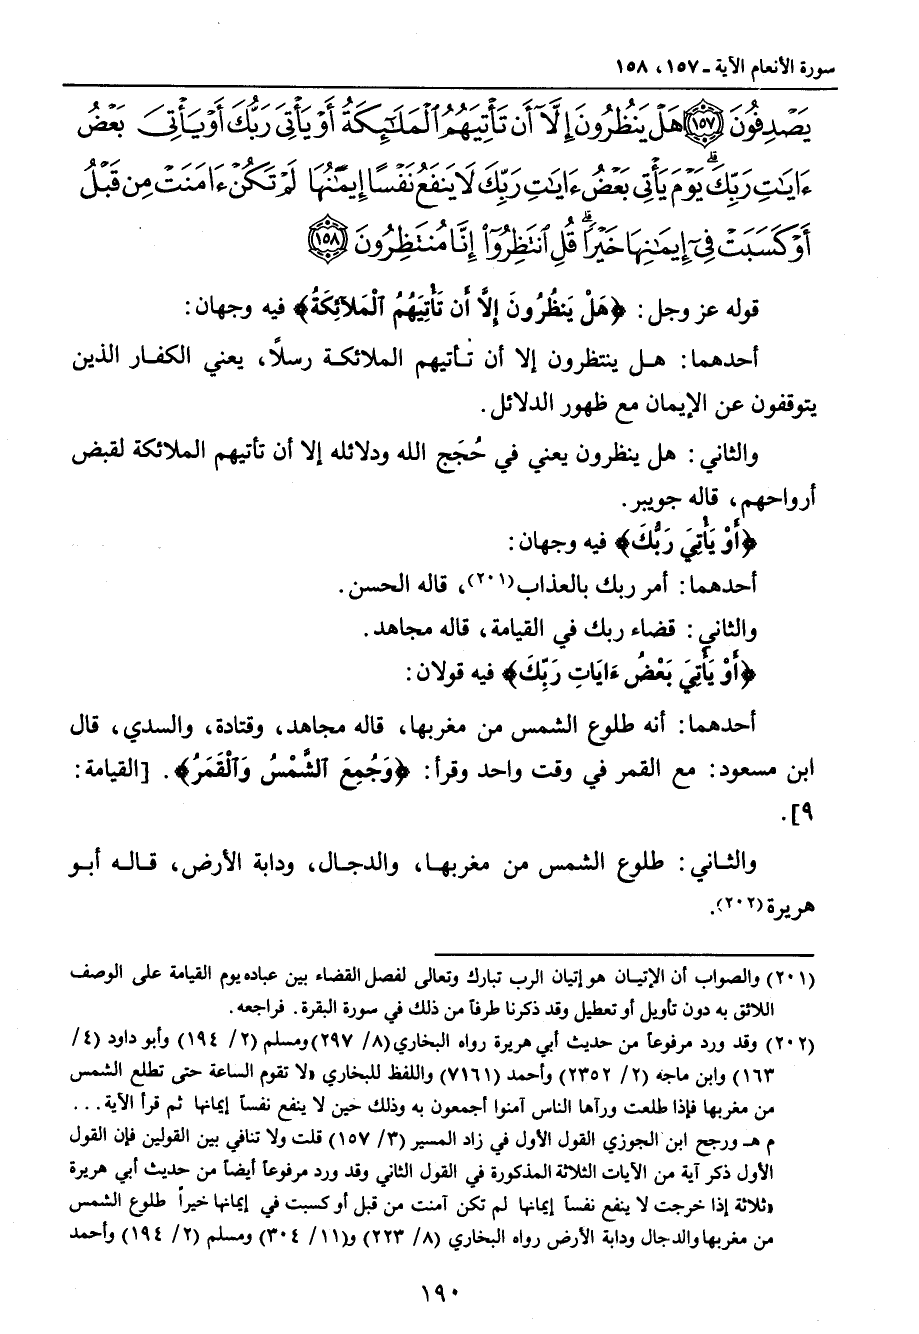 سورة الأنعام الآية ـ ١٥٧، ١٥٨
يَصْدِفُونَ ﴿١٥٧﴾ هَلْ يَنظُرُونَ إِلَّآ أَن تَأْتِيَهُمُ ٱلْمَلَٰٓئِكَةُ أَوْ يَأْتِىَ رَبُّكَ أَوْ يَأْتِىَ بَعْضُ
ءَايَٰتِ رَبِّكَ ۗ يَوْمَ يَأْتِى بَعْضُ ءَايَٰتِ رَبِّكَ لَا يَنفَعُ نَفْسًا إِيمَٰنُهَا لَمْ تَكُنْ ءَامَنَتْ مِن قَبْلُ
أَوْ كَسَبَتْ فِىٓ إِيمَٰنِهَا خَيْرًا ۗ قُلِ ٱنتَظِرُوٓا۟ إِنَّا مُنتَظِرُونَ ﴿١٥٨﴾
قوله عز وجل: ﴿هَلْ يَنظُرُونَ إِلَّا أَن تَأْتِيَهُمُ الْمَلَائِكَةُ﴾ فيه وجهان:
أحدهما: هل ينتظرون إلا أن تأتيهم الملائكة رسلًا، يعني الكفار الذين
يتوقفون عن الإيمان مع ظهور الدلائل.
والثاني: هل ينظرون يعني في حُجَج الله ودلائله إلا أن تأتيهم الملائكة لقبض
أرواحهم، قاله جويبر.
﴿أَوْ يَأْتِيَ رَبُّكَ﴾ فيه وجهان:
أحدهما: أمر ربك بالعذاب(٢٠١)، قاله الحسن.
والثاني: قضاء ربك في القيامة، قاله مجاهد.
﴿أَوْ يَأْتِيَ بَعْضُ ءَايَاتِ رَبِّكَ﴾ فيه قولان:
أحدهما: أنه طلوع الشمس من مغربها، قاله مجاهد، وقتادة، والسدي، قال
ابن مسعود: مع القمر في وقت واحد وقرأ: ﴿وَجُمِعَ الشَّمْسُ وَالْقَمَرُ﴾. [القيامة:
٩].
والثاني: طلوع الشمس من مغربها، والدجال، ودابة الأرض، قاله أبو
هريرة(٢٠٢).
(٢٠١) والصواب أن الإتيان هو إتيان الرب تبارك وتعالى لفصل القضاء بين عباده يوم القيامة على الوصف
اللائق به دون تأويل أو تعطيل وقد ذكرنا طرفاً من ذلك في سورة البقرة. فراجعه.
(٢٠٢) وقد ورد مرفوعاً من حديث أبي هريرة رواه البخاري (٨/ ٢٩٧) ومسلم (٢/ ١٩٤) وأبو داود (٤/
١٦٣) وابن ماجه (٢/ ٢٣٥٢) وأحمد (٧١٦١) واللفظ للبخاري «لا تقوم الساعة حتى تطلع الشمس
من مغربها فإذا طلعت ورآها الناس آمنوا أجمعون به وذلك حين لا ينفع نفساً إيمانها ثم قرأ الآية...
م هـ ورجح ابن الجوزي القول الأول في زاد المسير (٣/ ١٥٧) قلت ولا تنافي بين القولين فإن القول
الأول ذكر آية من الآيات الثلاثة المذكورة في القول الثاني وقد ورد مرفوعاً أيضاً من حديث أبي هريرة
«ثلاثة إذا خرجت لا ينفع نفساً إيمانها لم تكن آمنت من قبل أو كسبت في إيمانها خيراً طلوع الشمس
من مغربها والدجال ودابة الأرض رواه البخاري (٨/ ٢٢٣) و(١١/ ٣٠٤) ومسلم (٢/ ١٩٤) وأحمد
١٩٠